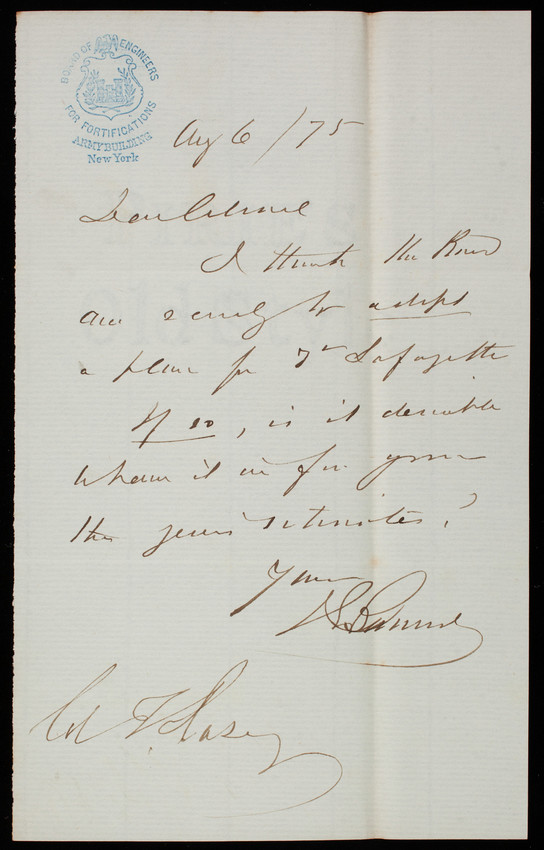 BOARD OF ENGINEERS
FOR FORTIFICATIONS
ARMY BUILDING
New York
Aug 6 / 75
Dear Colonel
I think the Board
are ready to adopt
a plan for Ft Lafayette
If so, is it desirable
to have it in for your
this years estimates?
Yours
J G Barnard
Col T L Casey